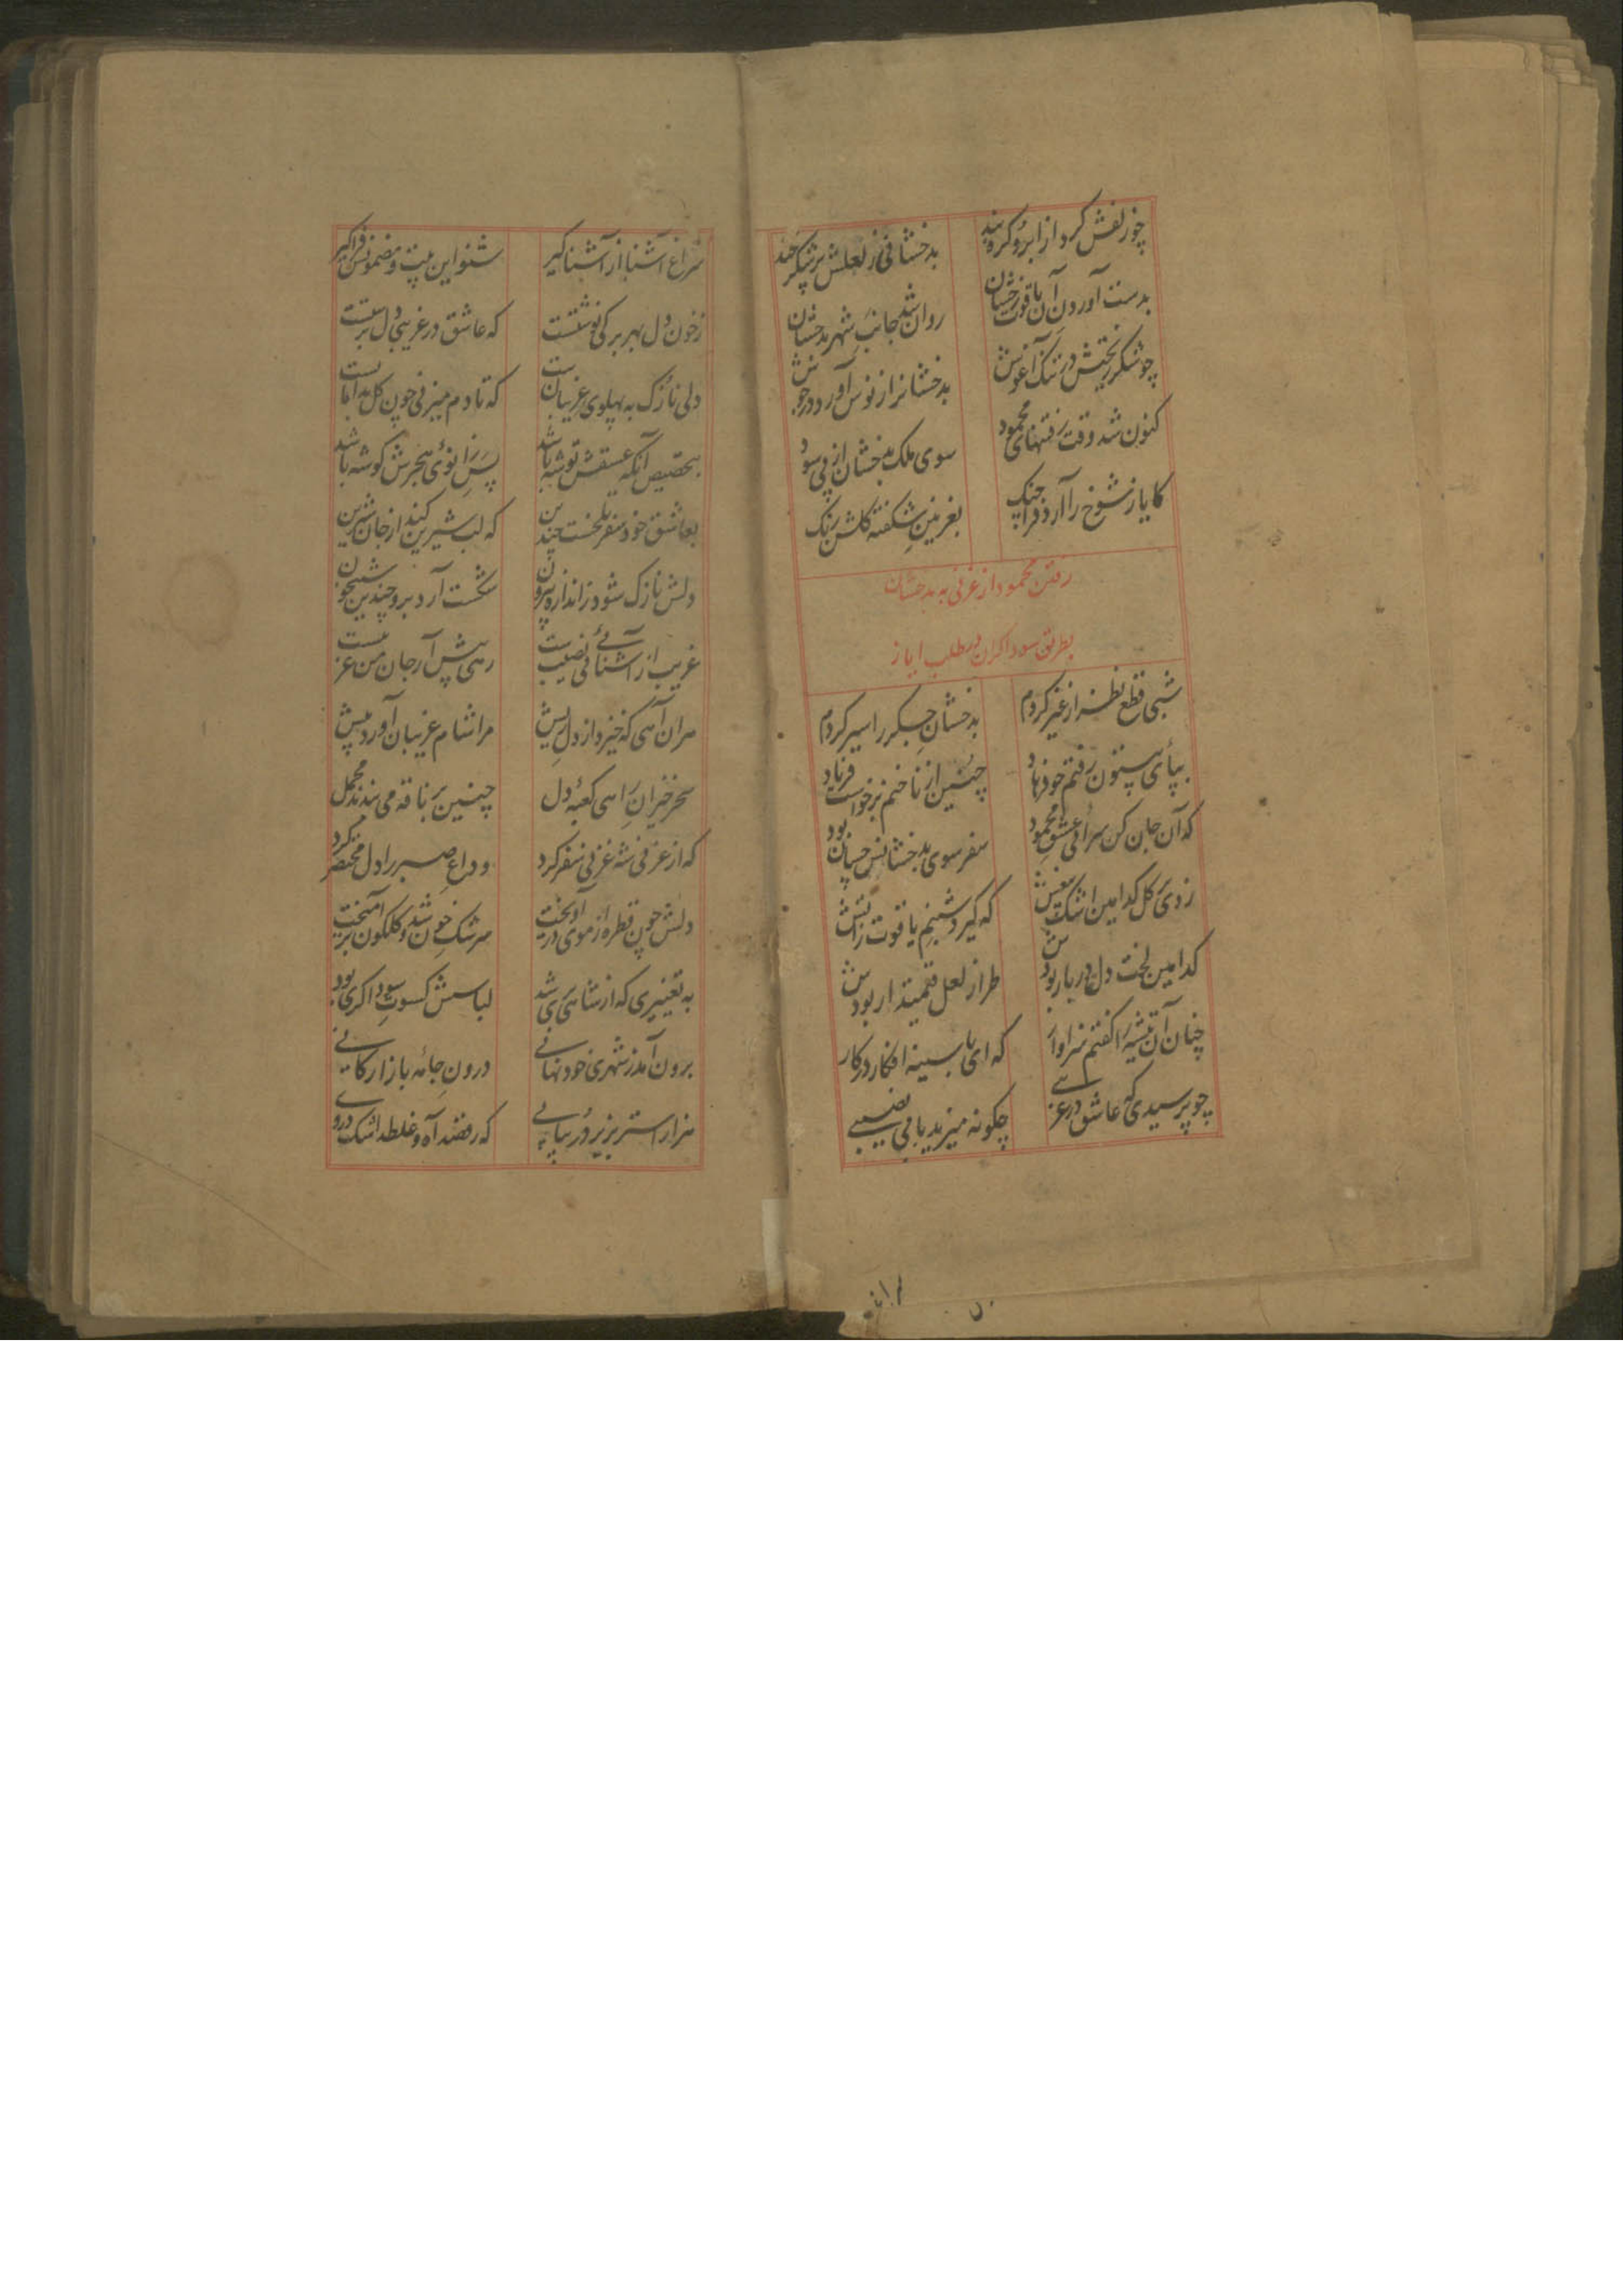 چو زلفش کرد از ابرو کره بند بدخشانی ز لعلش پر شکر خند
بدست آوردن آن یاقوت رخشان روان شد جانب شهر بدخشان
چو شکر ریختش در تنک آغوش بدخشانرا ز نوش آورد در جوش
کنون شد وقت رفتنهای محمود سوی ملک بدخشان از پی سود
کایاز شوخ را آرد فراچنک بغزنین شکفته کلشن رنک
رفتن محمود از غزنی به بدخشان
بطریق سوداکران بطلب ایاز
شبی قطع نظر از غیر کردم بدخشان جکر را سیر کردم
بپای بیستون رفتم چو فرهاد چنین از ناخنم برخواست فریاد
که آن جان کن سرائی عشق محمود سفر سوی بدخشانش چسان بود
ز دی کل کدامین اشک بغیش که کیرد شبنم یاقوت زاتش
کدامین لخت دل در بار بودش طراز لعل قیمتدار بودش
چنان آن تیشه را کفتم سزاوار که ای با سینه افکار در کار
چو پرسیدی که عاشق در غریبی چکونه میزید با بی نصیبی
سراغ آشنا از آشنا کیر شنو این بیت و مضمونش فراکیر
ز خون دل بهر برکی نوشتست که عاشق در غریبی دل برشتست
دلی نازک به پهلوی غریبان که تا دم میزنی چون کل
بتخصیص آنکه عشقش توشه باشد پس زانوی هجرش کوشه باشد
بعاشق خود سفر تلخست چندین که لب شیرین کند از جان شیرین
دلش نازک شود ز اندازه بیرون شکست آرد برو چندین شبیخون
غریب از آشنائی بی نصیبست رهی پیش آر جان من غریبست
مران آهی که خیزد از دل ریش مرا شام غریبان آورد پیش
سحر خیزان راهی کعبهٔ دل چنین بر ناقه می بندند محمل
که از غزنی شه غزنی سفر کرد وداع صبر را دل مختصر کرد
دلش چون قطره از موی در آویخت سرشک خون شد و کلکون برآمیخت
به تغییری که از شاهی بری شد لباسش کسوت سوداکری بود
برون آمد ز شهری خود نهانی درون جامهٔ بازارکانی
هزار استر بزیر در بپایی که رفتند آه و غلطد اشک در وی